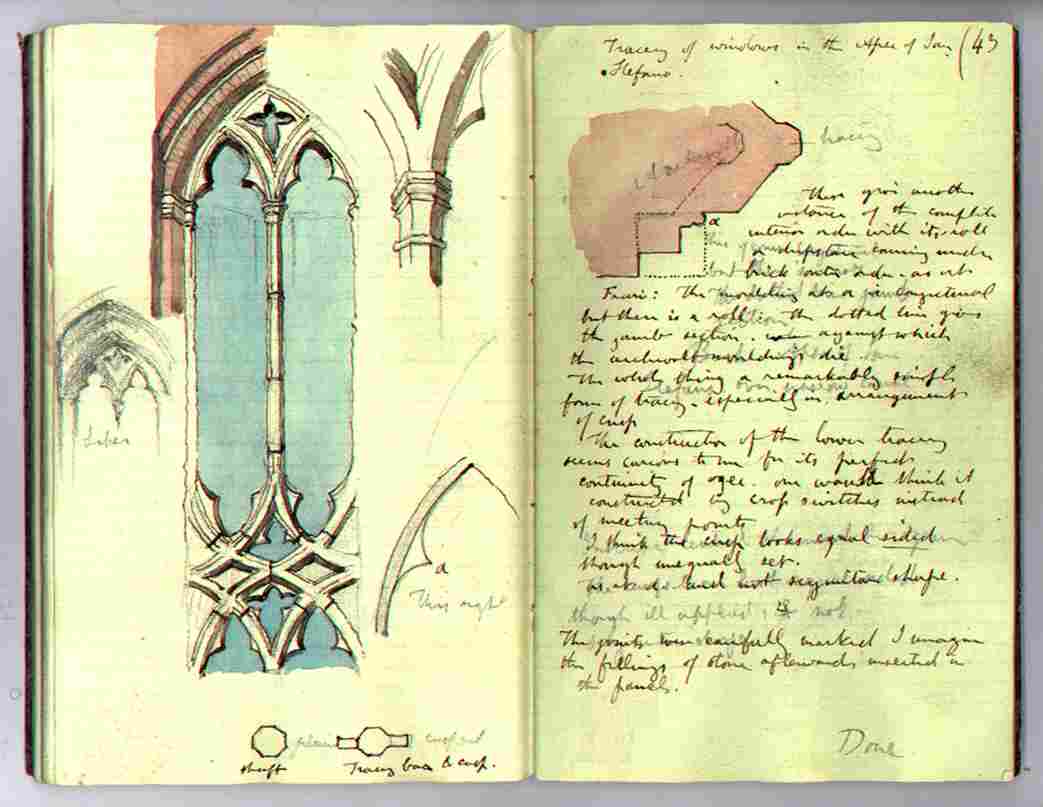 Lifes
a
This right
plain
cusped
shaft
Tracery bar & cusp.
Tracery of windows in the Apse of San (43
Stefano.
tracery
a
These give another
instance of the complete
interior order with its roll
coming under
but brick outer order - as at
Frari: The moulding
but there is a roll: The dotted line gives
the jamb section. against which
the archivolt mouldings die
The whole thing a remarkably simple
form of tracery. especially in arrangement
of cusp
The construction of the lower tracery
seems curious to me for its perfect
continuity of ogee. one would think it
constructed by cross switches instead
of meeting points
I think the cusp looks equal sided
though unequally set.
and not segmental shape.
though ill applied, is not.
The points were carefully marked I imagine
the fillings of stone afterwards inserted in
the panels.
Done